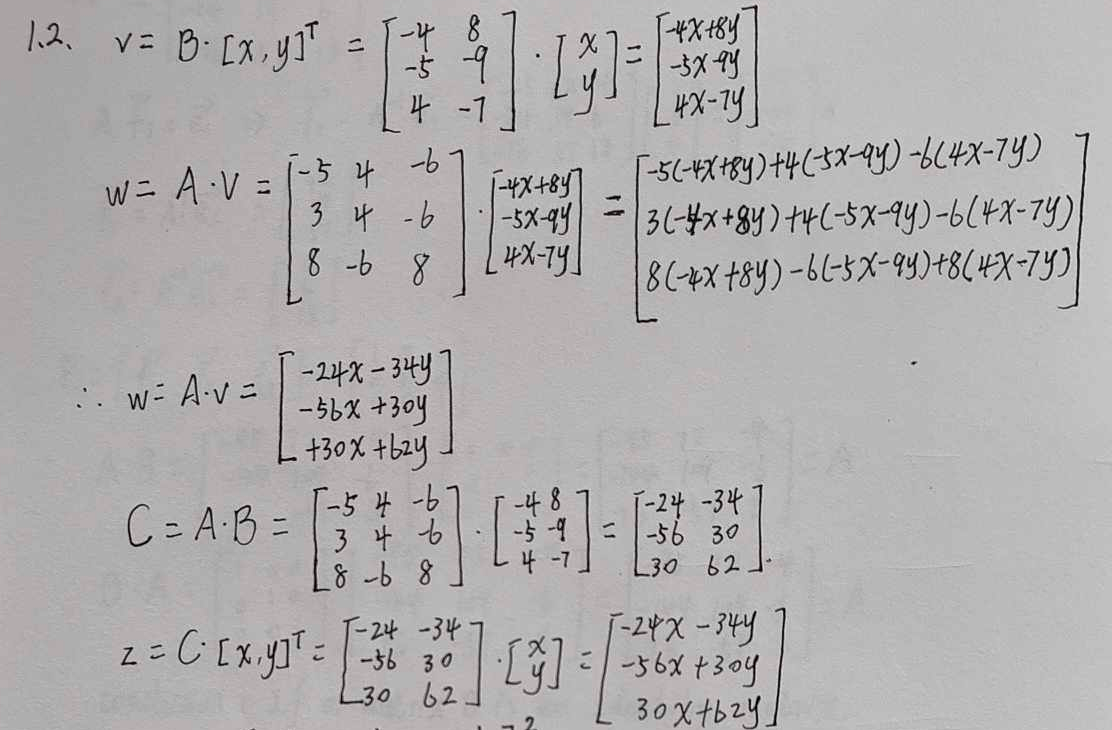 1.2. v = B·[x, y]ᵀ = [-4 8; -5 -9; 4 -7] · [x; y] = [-4x+8y; -5x-9y; 4x-7y]
w = A·v = [-5 4 -6; 3 4 -6; 8 -6 8] · [-4x+8y; -5x-9y; 4x-7y] = [-5(-4x+8y)+4(-5x-9y)-6(4x-7y); 3(-4x+8y)+4(-5x-9y)-6(4x-7y); 8(-4x+8y)-6(-5x-9y)+8(4x-7y)]
∴ w = A·v = [-24x-34y; -56x+30y; +30x+62y]
C = A·B = [-5 4 -6; 3 4 -6; 8 -6 8] · [-4 8; -5 -9; 4 -7] = [-24 -34; -56 30; 30 62].
z = C·[x, y]ᵀ = [-24 -34; -56 30; 30 62] · [x; y] = [-24x-34y; -56x+30y; 30x+62y]